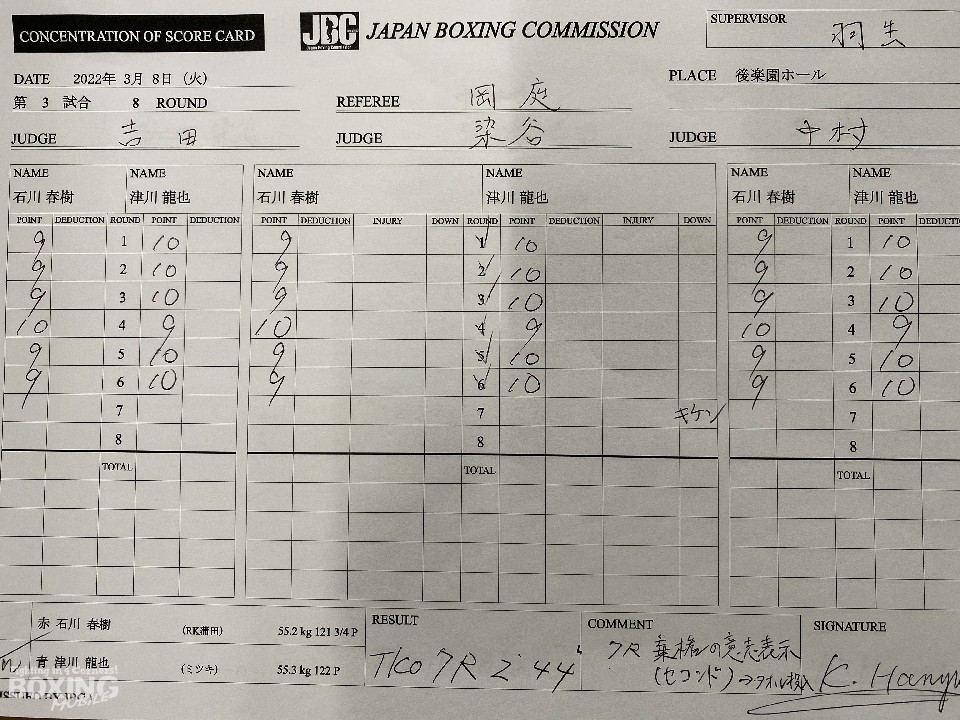 CONCENTRATION OF SCORE CARD
JBC
JAPAN BOXING COMMISSION
SUPERVISOR 羽生
DATE 2022年 3月 8日 (火)
PLACE 後楽園ホール
第 3 試合 8 ROUND
REFEREE 岡庭
JUDGE 吉田
JUDGE 染谷
JUDGE 中村
NAME NAME NAME NAME NAME NAME
石川 春樹 津川 龍也 石川 春樹 津川 龍也 石川 春樹 津川 龍也
POINT DEDUCTION ROUND POINT DEDUCTION POINT DEDUCTION INJURY DOWN ROUND POINT DEDUCTION INJURY DOWN POINT DEDUCTION ROUND POINT DEDUCTI
9 1 10 9 1 10 9 1 10
9 2 10 9 2 10 9 2 10
9 3 10 9 3 10 9 3 10
10 4 9 10 4 9 10 4 9
9 5 10 9 5 10 9 5 10
9 6 10 9 6 10 9 6 10
7 7 キケン 7
8 8 8
TOTAL TOTAL TOTAL
赤 石川 春樹 (RK蒲田) 55.2 kg 121 3/4 P
青 津川 龍也 (ミツキ) 55.3 kg 122 P
RESULT
TKO 7R 2'44"
COMMENT
7R 棄権の意志表示
(セコンド)→タオル投入
SIGNATURE
K. Hanyu
BOXING
MOBILE